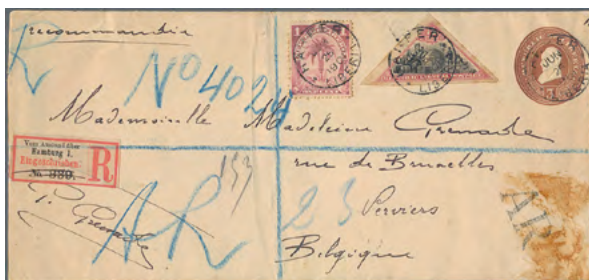 recommandée
R
No 4024
HARPER
LIBERIA
Mademoiselle Madeleine Grenade
rue de Bruxelles
23 Verviers
Belgique
Vom Ausland über
Hamburg 1.
Eingeschrieben.
No. 980.
R
153
P. Grenade
AR
AR